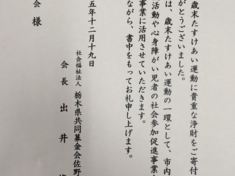 歳末たすけあい運動に貴重な浄財をご寄付
がとうございました。
は、歳末たすけあい運動の一環として、市内
活動や心身障がい児者の社会参加促進事業
事業に活用させていただきます。
ながら、書中をもってお礼申し上げます。
五年十二月十九日
社会福祉法人 栃木県共同募金会佐野
会長 出井
会様